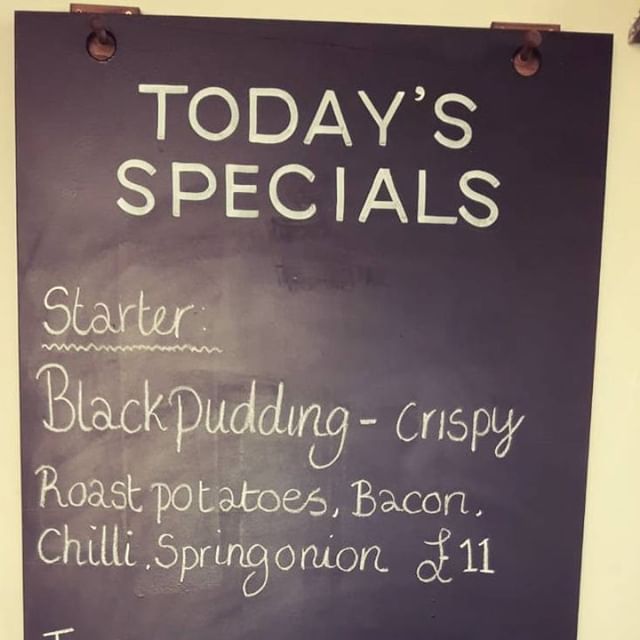 TODAY'S
SPECIALS
Starter:
Black Pudding - Crispy
Roast potatoes, Bacon,
Chilli, Spring onion £11